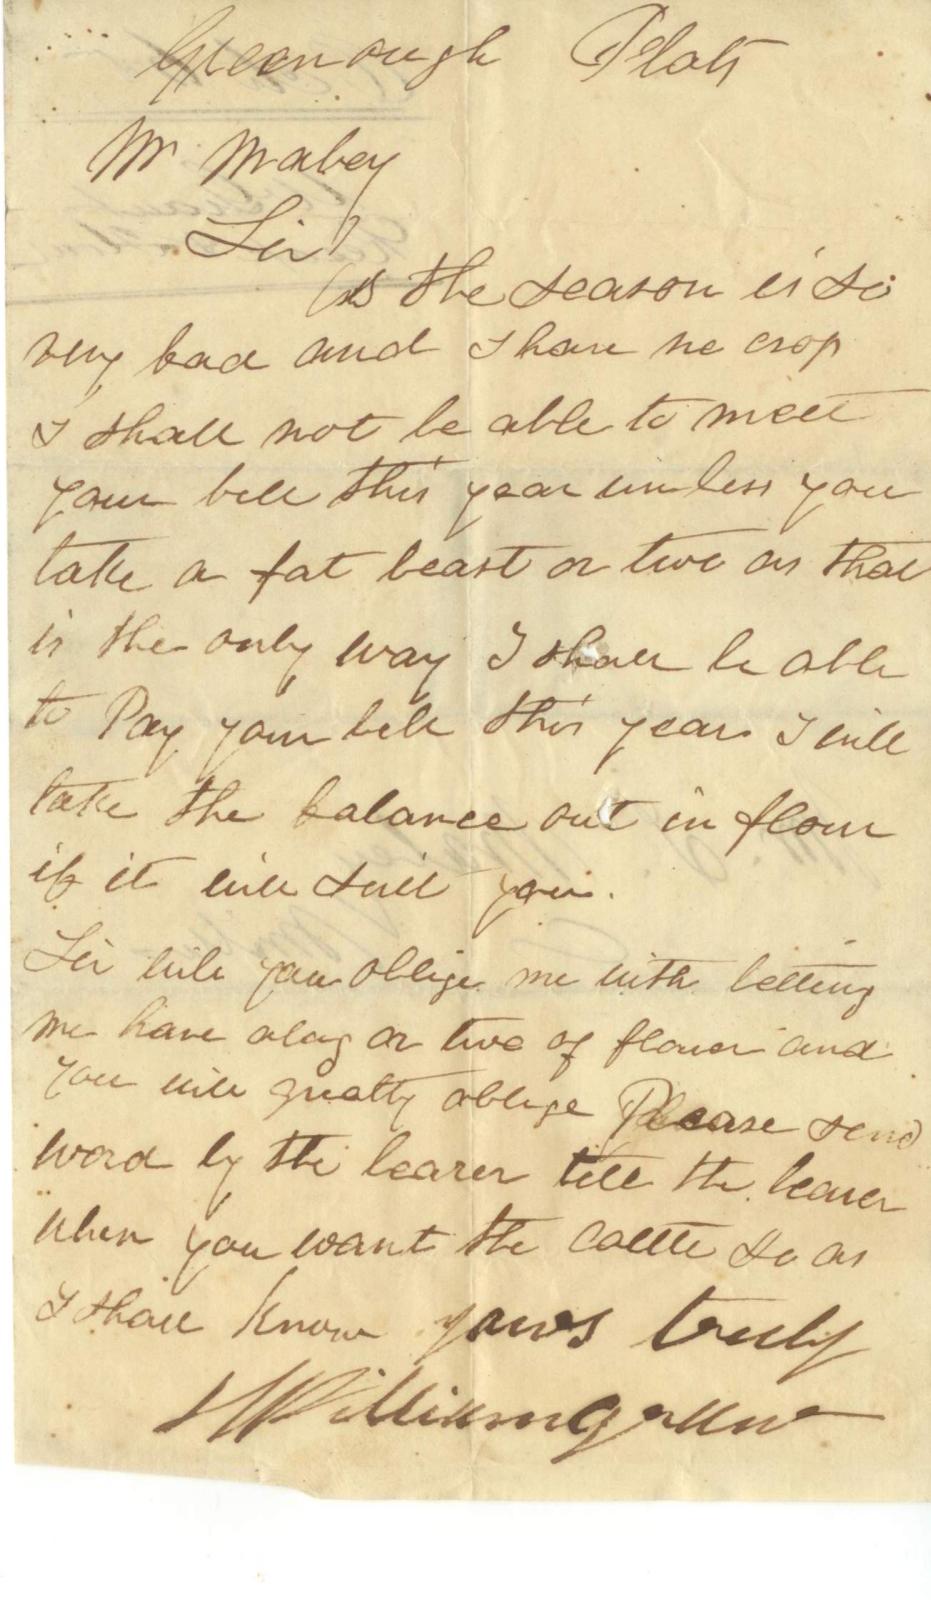 Greenough Flats
Mr Mabey
Sir
As the season is so
very bad and I have no crop
I shall not be able to meet
your bill this year unless you
take a fat beast or two as that
is the only way I shall be able
to Pay your bill this year I will
take the balance out in flour
if it will suit you.
Sir will you oblige me with letting
me have a bag or two of flower and
you will greatly oblige Please send
word by the bearer tell the bearer
when you want the cattle so as
I shall know yours truly
William